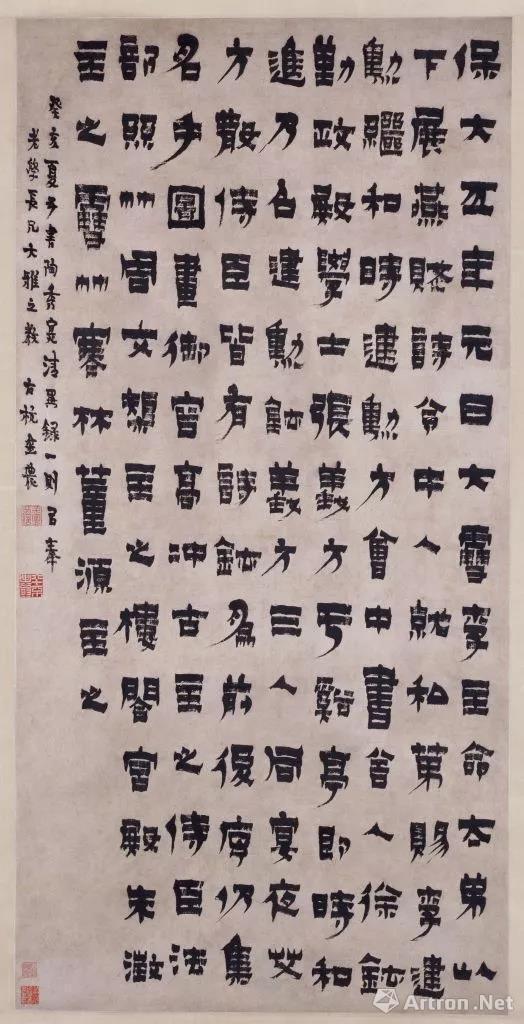 保大五年元日大雪李主命太弟以
下展燕賦詩令中人就和第賜李建
勳繼和時建勳方會中書省人徐鉉
勤政殿學士張義方于谿亭即時和
進乃召建勳鉉義方三人同宴夜艾
方散侍臣皆有詩鉉為前後序仍集
名手圖畫御容高沖古主之侍臣法
部照竹周文矩主之樓閣宮殿朱澂
主之雪竹寒林董源主之
癸亥夏書陶秀寔清異錄一則㠯奉
老學長兄大雅之教 古杭金農
Artron.Net